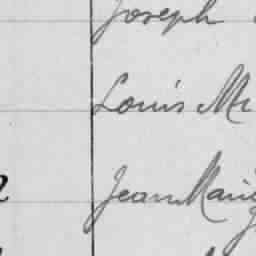 Joseph
Louis M
Jean Marie